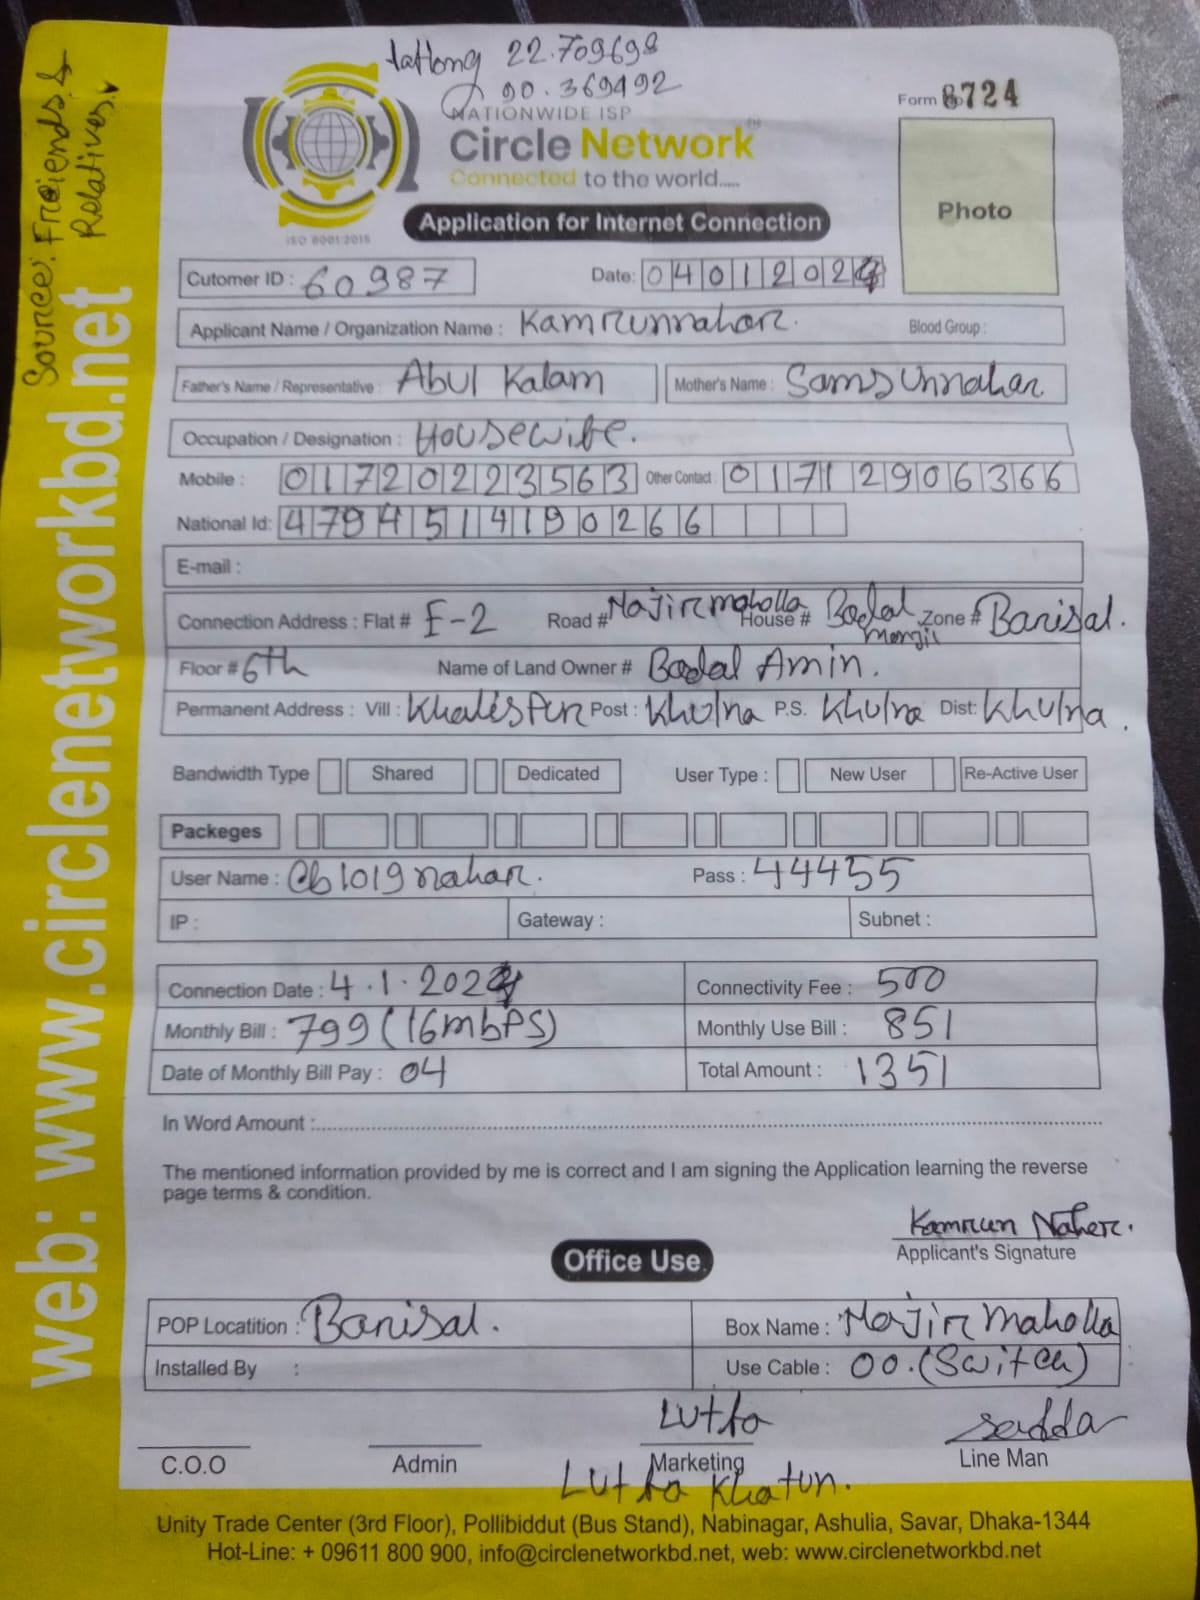 latlong 22.709698
90.369492
Source: Freiends &
Relatives.
NATIONWIDE ISP
Circle Network
Connected to the world.....
ISO 9001:2015
Form 8724
Photo
Application for Internet Connection
Cutomer ID : 60987
Date: 04012024
Applicant Name / Organization Name : Kamrunnahar. Blood Group :
Father's Name / Representative : Abul Kalam Mother's Name : Samsunnahar
Occupation / Designation : Housewife.
Mobile : 01720223563 Other Contact : 01712906366
National Id: 4794514190266
E-mail :
Connection Address : Flat # F-2 Road # Najir maholla House # Badal Monjil Zone # Barisal.
Floor # 6th Name of Land Owner # Badal Amin.
Permanent Address : Vill : Khalispur Post : Khulna P.S. Khulna Dist: Khulna.
Bandwidth Type Shared Dedicated User Type : New User Re-Active User
Packeges
User Name : cb1019nahar. Pass : 44455
IP : Gateway : Subnet :
Connection Date : 4.1.2024 Connectivity Fee : 500
Monthly Bill : 799 (16mbps) Monthly Use Bill : 851
Date of Monthly Bill Pay : 04 Total Amount : 1351
In Word Amount :
The mentioned information provided by me is correct and I am signing the Application learning the reverse
page terms & condition.
Kamrun Naher.
Applicant's Signature
Office Use
POP Locatition : Barisal. Box Name : Najir maholla
Installed By : Use Cable : 00. (Switch)
Lutfa
C.O.O Admin Marketing Line Man
Lutfa Khatun.
Unity Trade Center (3rd Floor), Pollibiddut (Bus Stand), Nabinagar, Ashulia, Savar, Dhaka-1344
Hot-Line: + 09611 800 900, info@circlenetworkbd.net, web: www.circlenetworkbd.net
web: www.circlenetworkbd.net